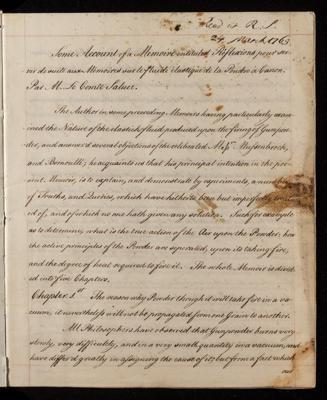 Read at R. S.
24 March 1763
Some Account of a Memoire entituled Reflexions pour ser-
vir de suite aux Memoires sur le fluide elastique de la Poudre a Canon.
Par M. Le Comte Saluce.
The Author in some preceeding Memoirs having particularly exam-
ined the Nature of the elastick fluid produced upon the firing of Gunpow-
der, and answered several objections of the celebrated Mess.rs Musschenbroek,
and Bernoulli; he acquaints us that his principal intention in the pre-
sent Memoir, is to explain, and demonstrate by experiments, a number
of Truths, and Queries, which have hitherto been but imperfectly treat-
ed of, and of which no one hath given any solution. Such for example
as to determine, what is the true action of the Air upon the Powder: how
the active principles of the Powder are seperated, upon its taking fire,
and the degree of heat required to fire it. The whole Memoir is divid-
ed into five Chapters.
Chapter 1st The reason why Powder though it will take fire in a va-
cuum, it nevertheless will not be propagated from one Grain to another.
All Philosophers have observed that Gunpowder burns very
slowly, very difficultly, and in a very small quantity in a vacuum, and
have differ'd greatly in assigning the cause of it; but from a fact which